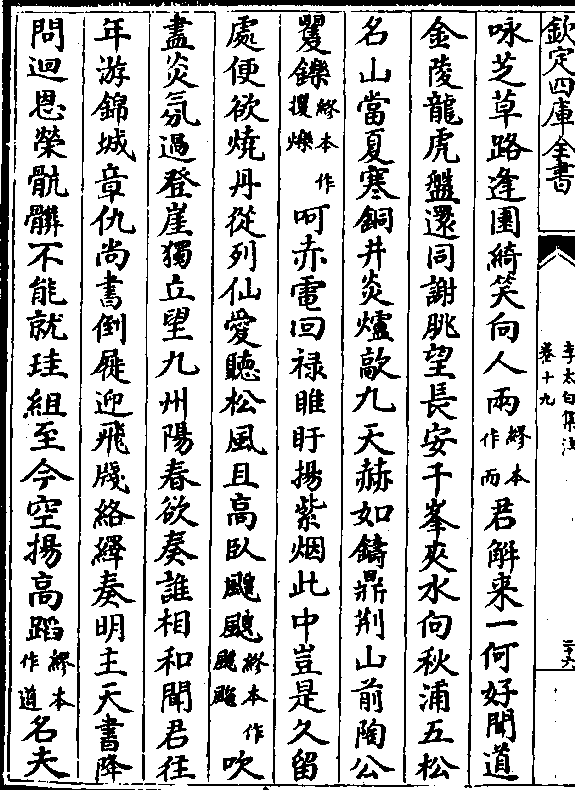 欽定四庫全書
李太白集注
卷十九
二十六
咏芝草路逢園綺笑向人兩繆本作而君解来一何好聞道
金陵龍虎盤還同謝朓望長安千峯夾水向秋浦五松
名山當夏寒銅井炎爐歊九天赫如鑄鼎荆山前陶公
矍鑠繆本作玃爍呵赤電回禄睢盱揚紫烟此中豈是久留
處便欲燒丹從列仙愛聽松風且高臥颼颼繆本作飀飀吹
盡炎氛過登崖獨立望九州陽春欲奏誰相和聞君往
年游錦城章仇尚書倒屣迎飛牋絡繹奏明主天書降
問迴恩榮骯髒不能就珪組至今空揚高蹈繆本作道名夫